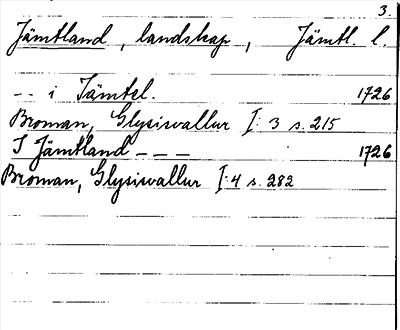 3.
Jämtland, landskap, Jämtl. l.
-- i Jämtel. 1726
Broman, Glysisvallur I: 3 s. 215
I Jämtland - - - 1726
Broman, Glysisvallur I: 4 s. 282